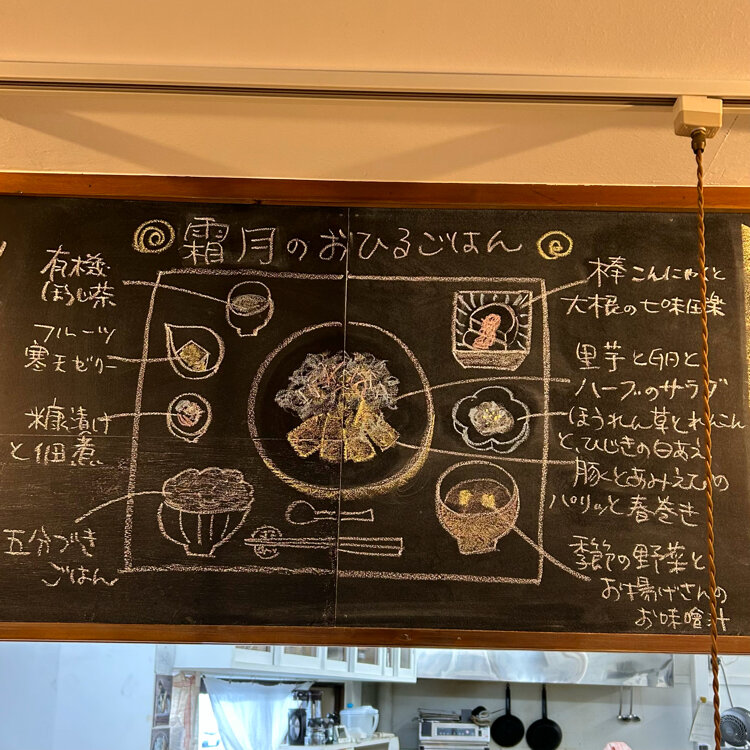 霜月のおひるごはん
有機
ほうじ茶
フルーツ
寒天ゼリー
糠漬け
と佃煮
五分づき
ごはん
棒こんにゃくと
大根の七味田楽
里芋と卵と
ハーブのサラダ
ほうれん草とれんこん
と、ひじきの白あえ
豚とあみえびの
パリッと春巻き
季節の野菜と
お揚げさんの
お味噌汁